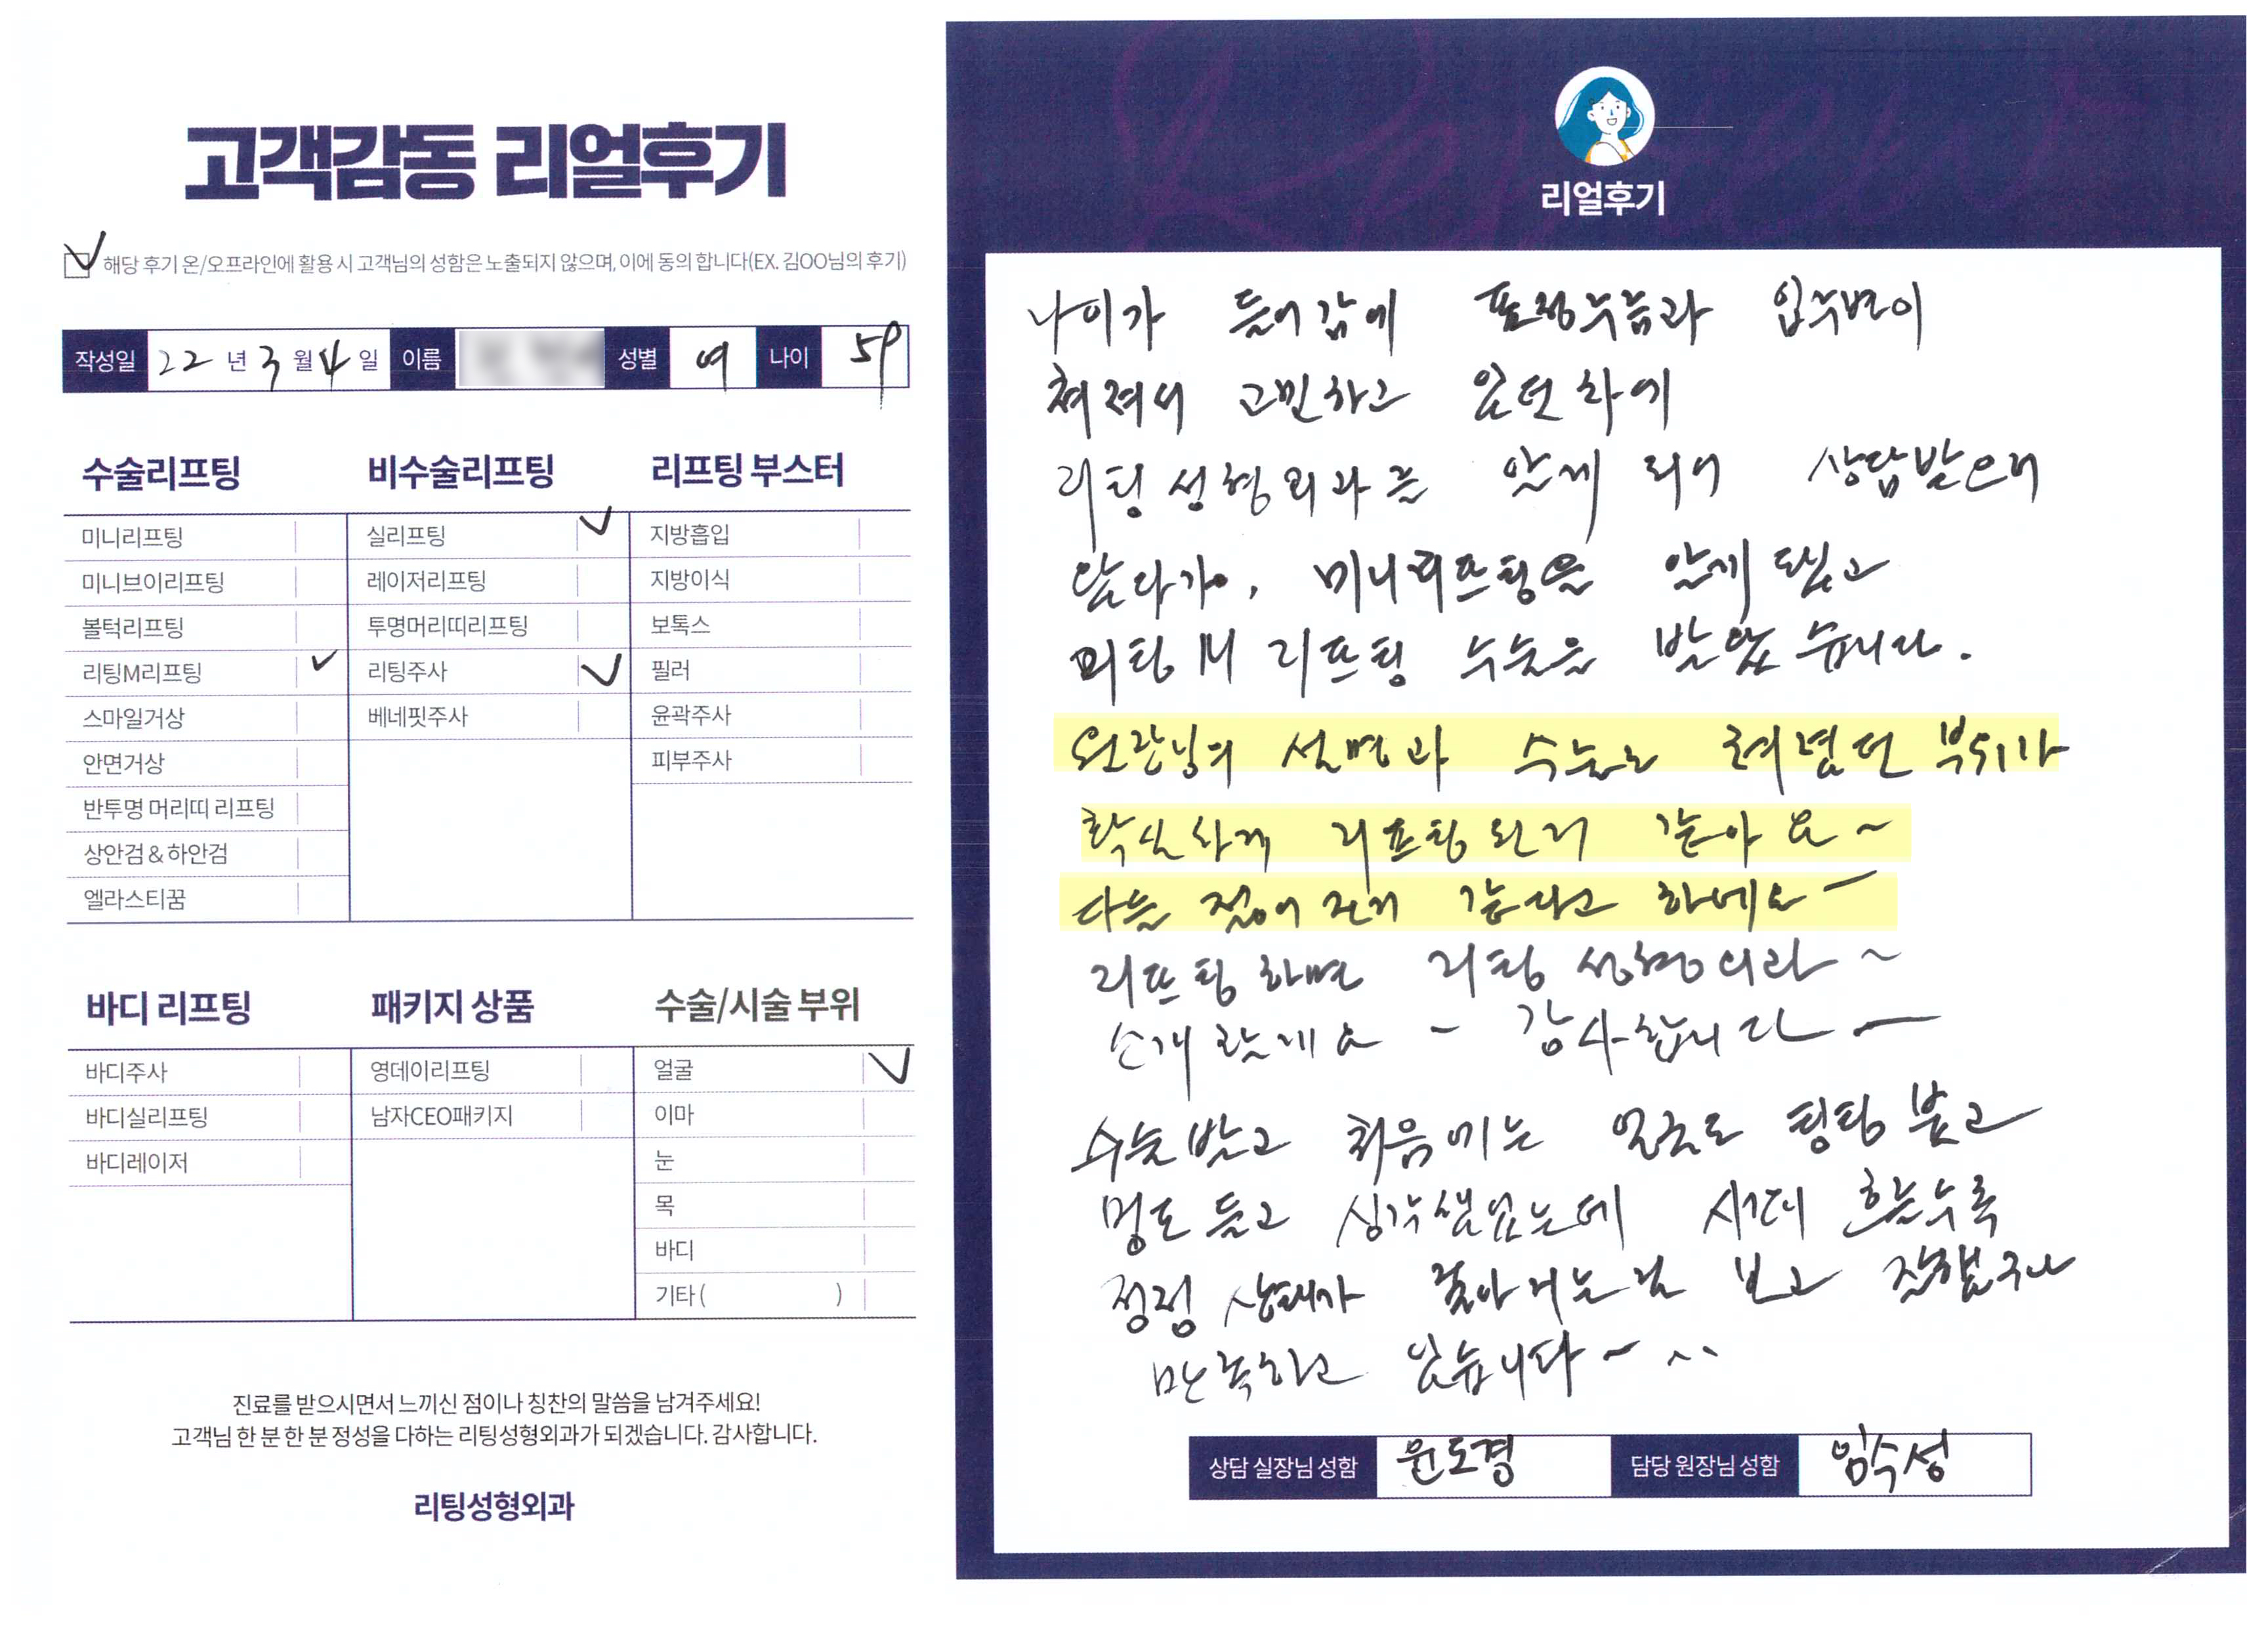 고객감동 리얼후기
해당 후기 온/오프라인에 활용 시 고객님의 성함은 노출되지 않으며, 이에 동의 합니다(EX. 김OO님의 후기)
작성일 22 년 3 월 4 일 이름 성별 여 나이 59
수술리프팅
미니리프팅
미니브이리프팅
볼턱리프팅
리팅M리프팅
스마일거상
안면거상
반투명 머리띠 리프팅
상안검 & 하안검
엘라스티꿈
비수술리프팅
실리프팅
레이저리프팅
투명머리띠리프팅
리팅주사
베네핏주사
리프팅 부스터
지방흡입
지방이식
보톡스
필러
윤곽주사
피부주사
바디 리프팅
바디주사
바디실리프팅
바디레이저
패키지 상품
영데이리프팅
남자CEO패키지
수술/시술 부위
얼굴
이마
눈
목
바디
기타 ( )
진료를 받으시면서 느끼신 점이나 칭찬의 말씀을 남겨주세요!
고객님 한 분 한 분 정성을 다하는 리팅성형외과가 되겠습니다. 감사합니다.
리팅성형외과
리얼후기
나이가 들어감에 표정주름과 입주변이
쳐져서 고민하고 있던 차에
리팅성형외과를 알게 되어 상담받으러
왔다가, 미니리프팅을 알게 됐고
리팅 M 리프팅 수술을 받았습니다.
원장님의 설명과 수술로 쳐졌던 부위가
확실하게 리프팅 된거 같아요~
다들 젊어진거 같다고 하네요~
리프팅 하면 리팅 성형외과~
소개할게요~ 감사합니다~
수술받고 처음에는 얼굴도 팅팅 붓고
멍도 들고 심각했었는데 시간이 흐를수록
점점 상태가 좋아지는걸 보고 잘했구나
만족하고 있습니다~ ^^
상담 실장님 성함 윤도경 담당 원장님 성함 임수성